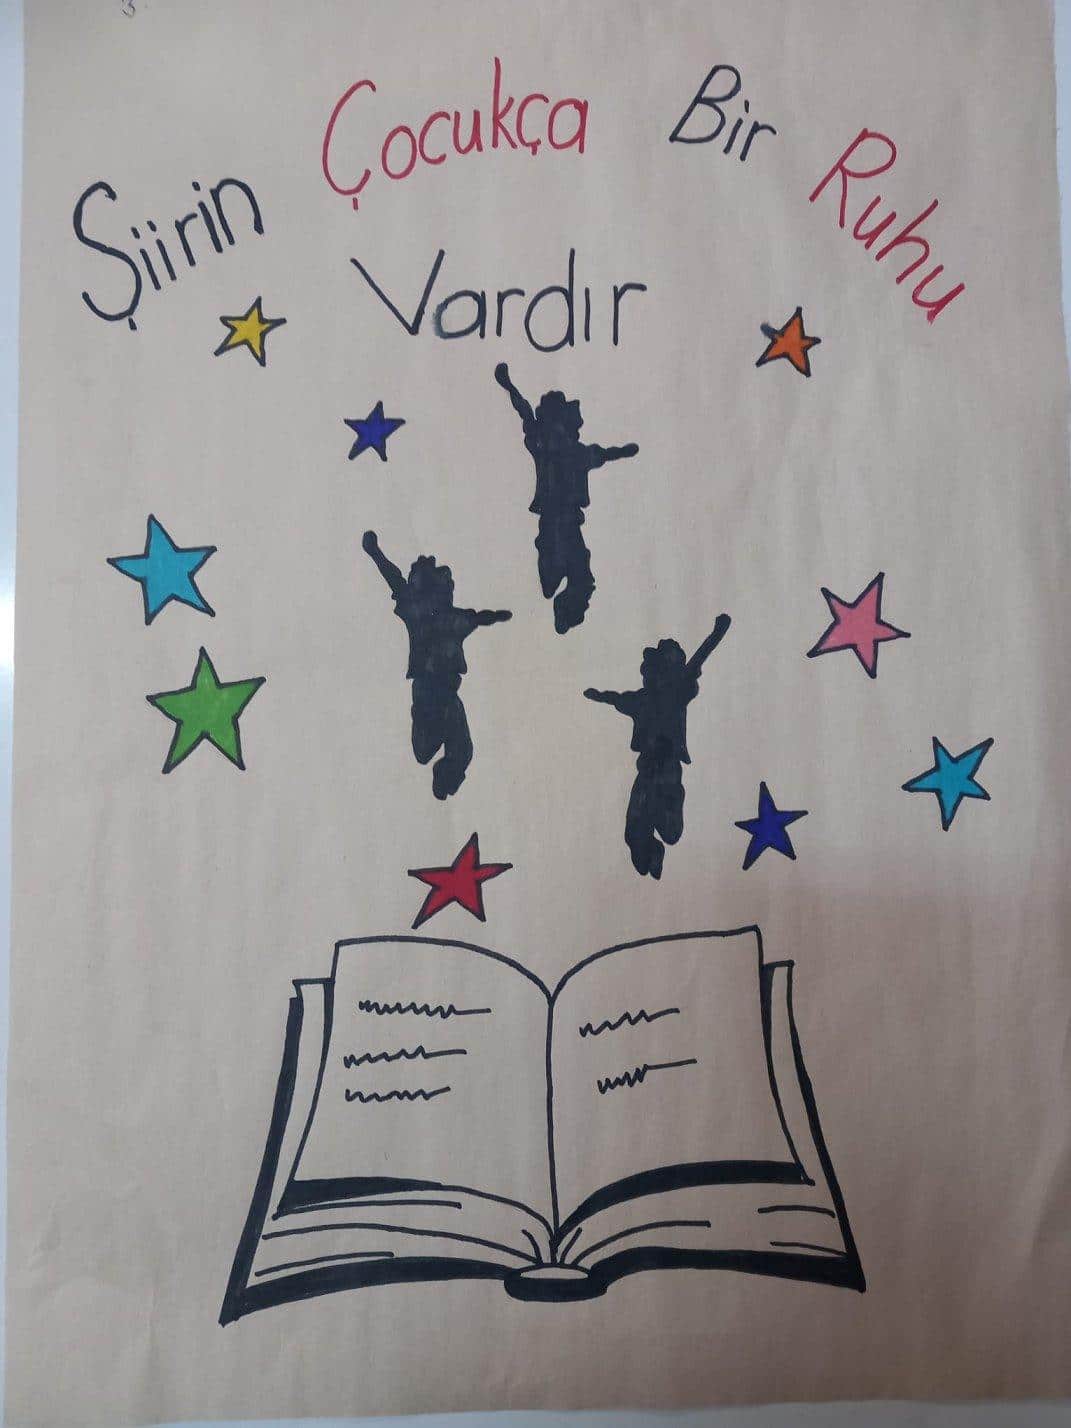 Şiirin Çocukça Bir Ruhu
Vardır